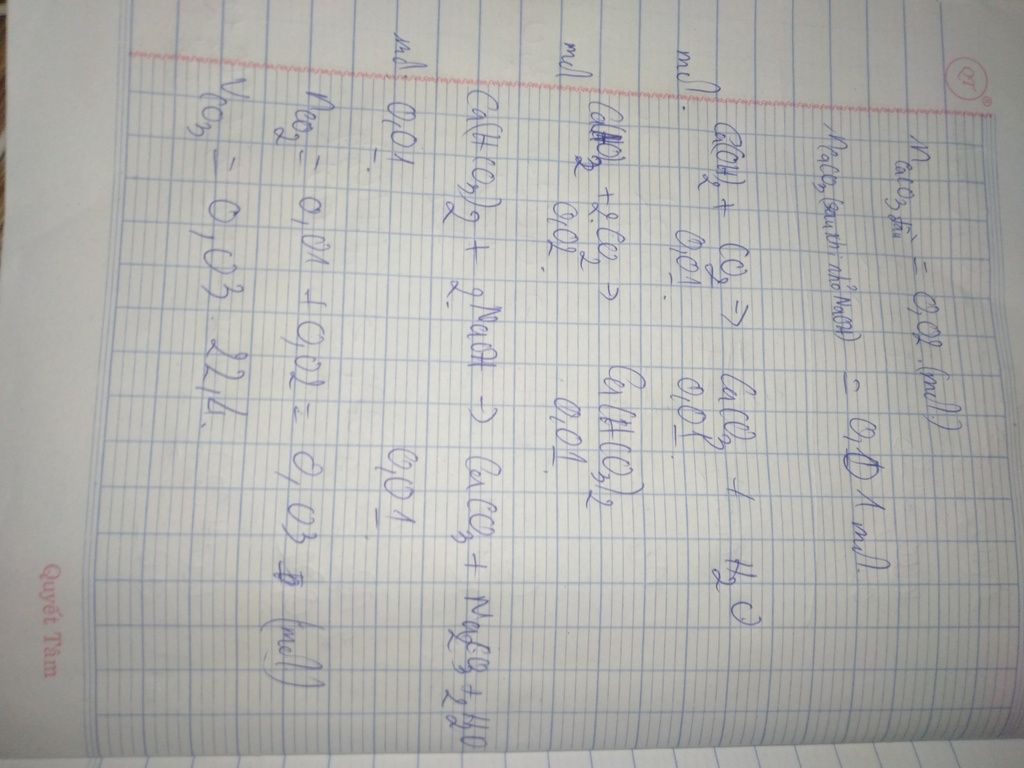 QT
n CaCO3 đầu = 0,02 (mol)
n CaCO3 (sau khi nhỏ NaOH) = 0,01 mol.
Ca(OH)2 + CO2 → CaCO3 + H2O
mol: 0,01 0,01
+ 2CO2 → Ca(HCO3)2
mol 0,02 0,01
Ca(HCO3)2 + 2NaOH → CaCO3 + Na2CO3 + 2H2O
mol: 0,01 0,01
nCO2 = 0,01 + 0,02 = 0,03 (mol)
= 0,03. 22,4.
Quyết Tâm